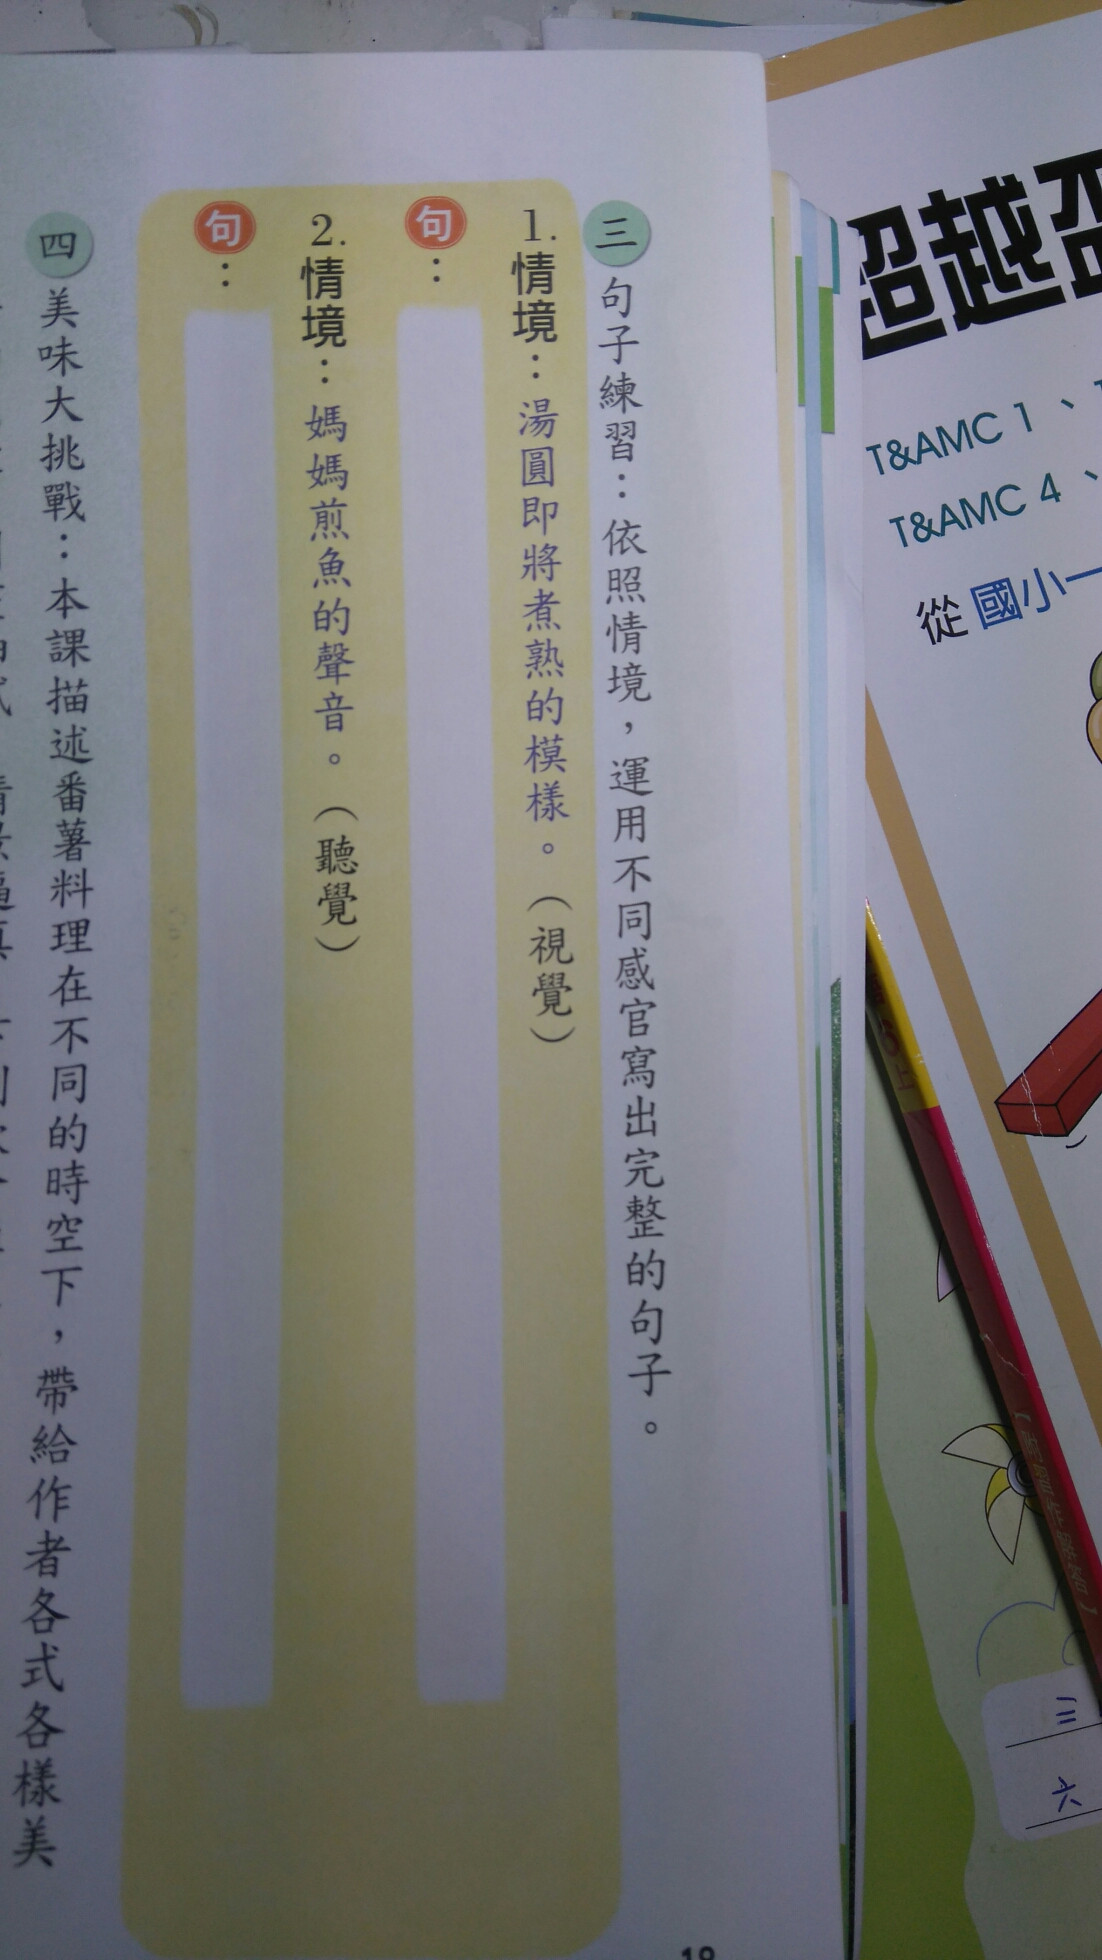 超越
T&AMC 1、
T&AMC 4、
從國小一
三 句子練習：依照情境，運用不同感官寫出完整的句子。
1.情境：湯圓即將煮熟的模樣。（視覺）
句：
2.情境：媽媽煎魚的聲音。（聽覺）
句：
四 美味大挑戰：本課描述番薯料理在不同的時空下，帶給作者各式各樣美
三
六